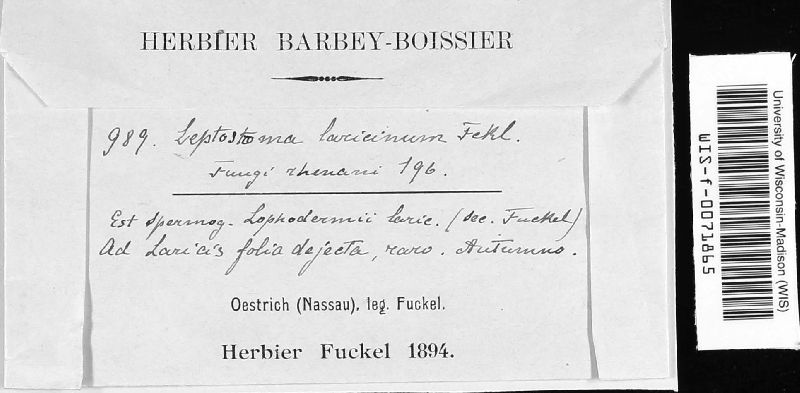 HERBIER BARBEY-BOISSIER
989. Leptostroma laricinum Fckl.
Fungi rhenani 196.
Est spermog. Lophodermii laric. (sec. Fuckel)
Ad Laricis folia dejecta, raro. Autumno.
Oestrich (Nassau), leg. Fuckel.
Herbier Fuckel 1894.
University of Wisconsin-Madison (WIS)
WIS-f-0071865